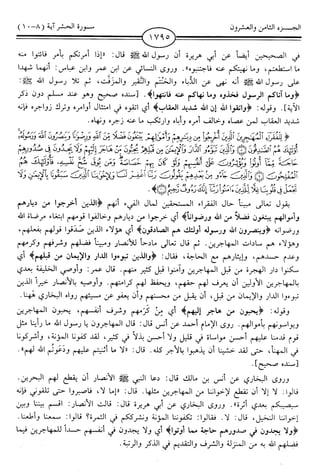 الجزء الثامن والعشرون
١٧٩٥
سورة الحشر آية (٨-١٠)
في الصحيحين أيضاً عن أبي هريرة أن رسول الله ﷺ قال: «إذا أمرتكم بأمر فائتوا منه
ما استطعتم، وما نهيتكم عنه فاجتنبوه». وروى النسائي عن ابن عمر وابن عباس: أنهما شهدا
على رسول الله ﷺ أنه نهى عن الدُّبّاء والحَنْتَم والنَّقير والمزفّت، ثم تلا رسول الله ﷺ:
﴿وما آتاكم الرسول فخذوه وما نهاكم عنه فانتهوا﴾. [سنده صحيح وهو عند مسلم دون ذكر
الآية]. وقوله: ﴿واتقوا الله إن الله شديد العقاب﴾ أي اتقوه في امتثال أوامره وترك زواجره فإنه
شديد العقاب لمن عصاه وخالف أمره وأباه وارتكب ما عنه زجره ونهاه.
﴿لِلْفُقَرَاءِ الْمُهَاجِرِينَ الَّذِينَ أُخْرِجُوا مِن دِيَارِهِمْ وَأَمْوَالِهِمْ يَبْتَغُونَ فَضْلًا مِّنَ اللَّهِ وَرِضْوَانًا وَيَنصُرُونَ اللَّهَ وَرَسُولَهُ
أُولَٰئِكَ هُمُ الصَّادِقُونَ ۝ وَالَّذِينَ تَبَوَّءُوا الدَّارَ وَالْإِيمَانَ مِن قَبْلِهِمْ يُحِبُّونَ مَنْ هَاجَرَ إِلَيْهِمْ وَلَا يَجِدُونَ فِي صُدُورِهِمْ
حَاجَةً مِّمَّا أُوتُوا وَيُؤْثِرُونَ عَلَىٰ أَنفُسِهِمْ وَلَوْ كَانَ بِهِمْ خَصَاصَةٌ وَمَن يُوقَ شُحَّ نَفْسِهِ فَأُولَٰئِكَ هُمُ
الْمُفْلِحُونَ ۝ وَالَّذِينَ جَاءُوا مِن بَعْدِهِمْ يَقُولُونَ رَبَّنَا اغْفِرْ لَنَا وَلِإِخْوَانِنَا الَّذِينَ سَبَقُونَا بِالْإِيمَانِ وَلَا
تَجْعَلْ فِي قُلُوبِنَا غِلًّا لِّلَّذِينَ آمَنُوا رَبَّنَا إِنَّكَ رَءُوفٌ رَّحِيمٌ ۝﴾.
يقول تعالى مبيناً حال الفقراء المستحقين لمال الفيء أنهم ﴿الذين أخرجوا من ديارهم
وأموالهم يبتغون فضلاً من الله ورضواناً﴾ أي خرجوا من ديارهم وخالفوا قومهم ابتغاء مرضاة الله
ورضوانه ﴿وينصرون الله ورسوله أولئك هم الصادقون﴾ أي هؤلاء الذين صَدَقوا قولهم بفعلهم،
وهؤلاء هم سادات المهاجرين. ثم قال تعالى مادحاً للأنصار ومبيناً فضلهم وشرفهم وكرمهم
وعدم حسدهم، وإيثارهم مع الحاجة، فقال: ﴿والذين تبوءوا الدار والإيمان من قبلهم﴾ أي
سكنوا دار الهجرة من قبل المهاجرين وآمنوا قبل كثير منهم. قال عمر: وأوصي الخليفة بعدي
بالمهاجرين الأولين أن يعرف لهم حقهم، ويحفظ لهم كرامتهم. وأوصيه بالأنصار خيراً الذين
تبوءوا الدار والإيمان من قبل، أن يقبل من محسنهم وأن يعفو عن مسيئهم رواه البخاري ههنا.
وقوله: ﴿يحبون من هاجر إليهم﴾ أي مِنْ كَرَمهم وشرف أنفسهم، يحبون المهاجرين
ويواسونهم بأموالهم. روى الإمام أحمد عن أنس قال: قال المهاجرون يا رسول الله ما رأينا مثل
قوم قدمنا عليهم أحسن مواساة في قليل ولا أحسن بذلاً في كثير، لقد كفونا المؤنة، وأشركونا
في المهنأ، حتى لقد خشينا أن يذهبوا بالأجر كله. قال: «لا ما أثنيتم عليهم ودَعَوتُم الله لهم».
[سنده صحيح].
وروى البخاري عن أنس بن مالك قال: دعا النبي ﷺ الأنصار أن يقطع لهم البحرين.
قالوا: لا إلا أن تقطع لإخواننا من المهاجرين مثلها. قال: «إما لا، فاصبروا حتى تلقوني فإنه
سيصيبكم بعدي أثرة». وروى البخاري عن أبي هريرة قال: قالت الأنصار: اقسم بيننا وبين
إخواننا النخيل، قال: لا. فقالوا: تكفوننا المؤنة ونشرككم في الثمرة؟ قالوا: سمعنا وأطعنا.
﴿ولا يجدون في صدورهم حاجة مما أوتوا﴾ أي ولا يجدون في أنفسهم حسداً للمهاجرين فيما
فضلهم الله به من المنزلة والشرف والتقديم في الذكر والرتبة.